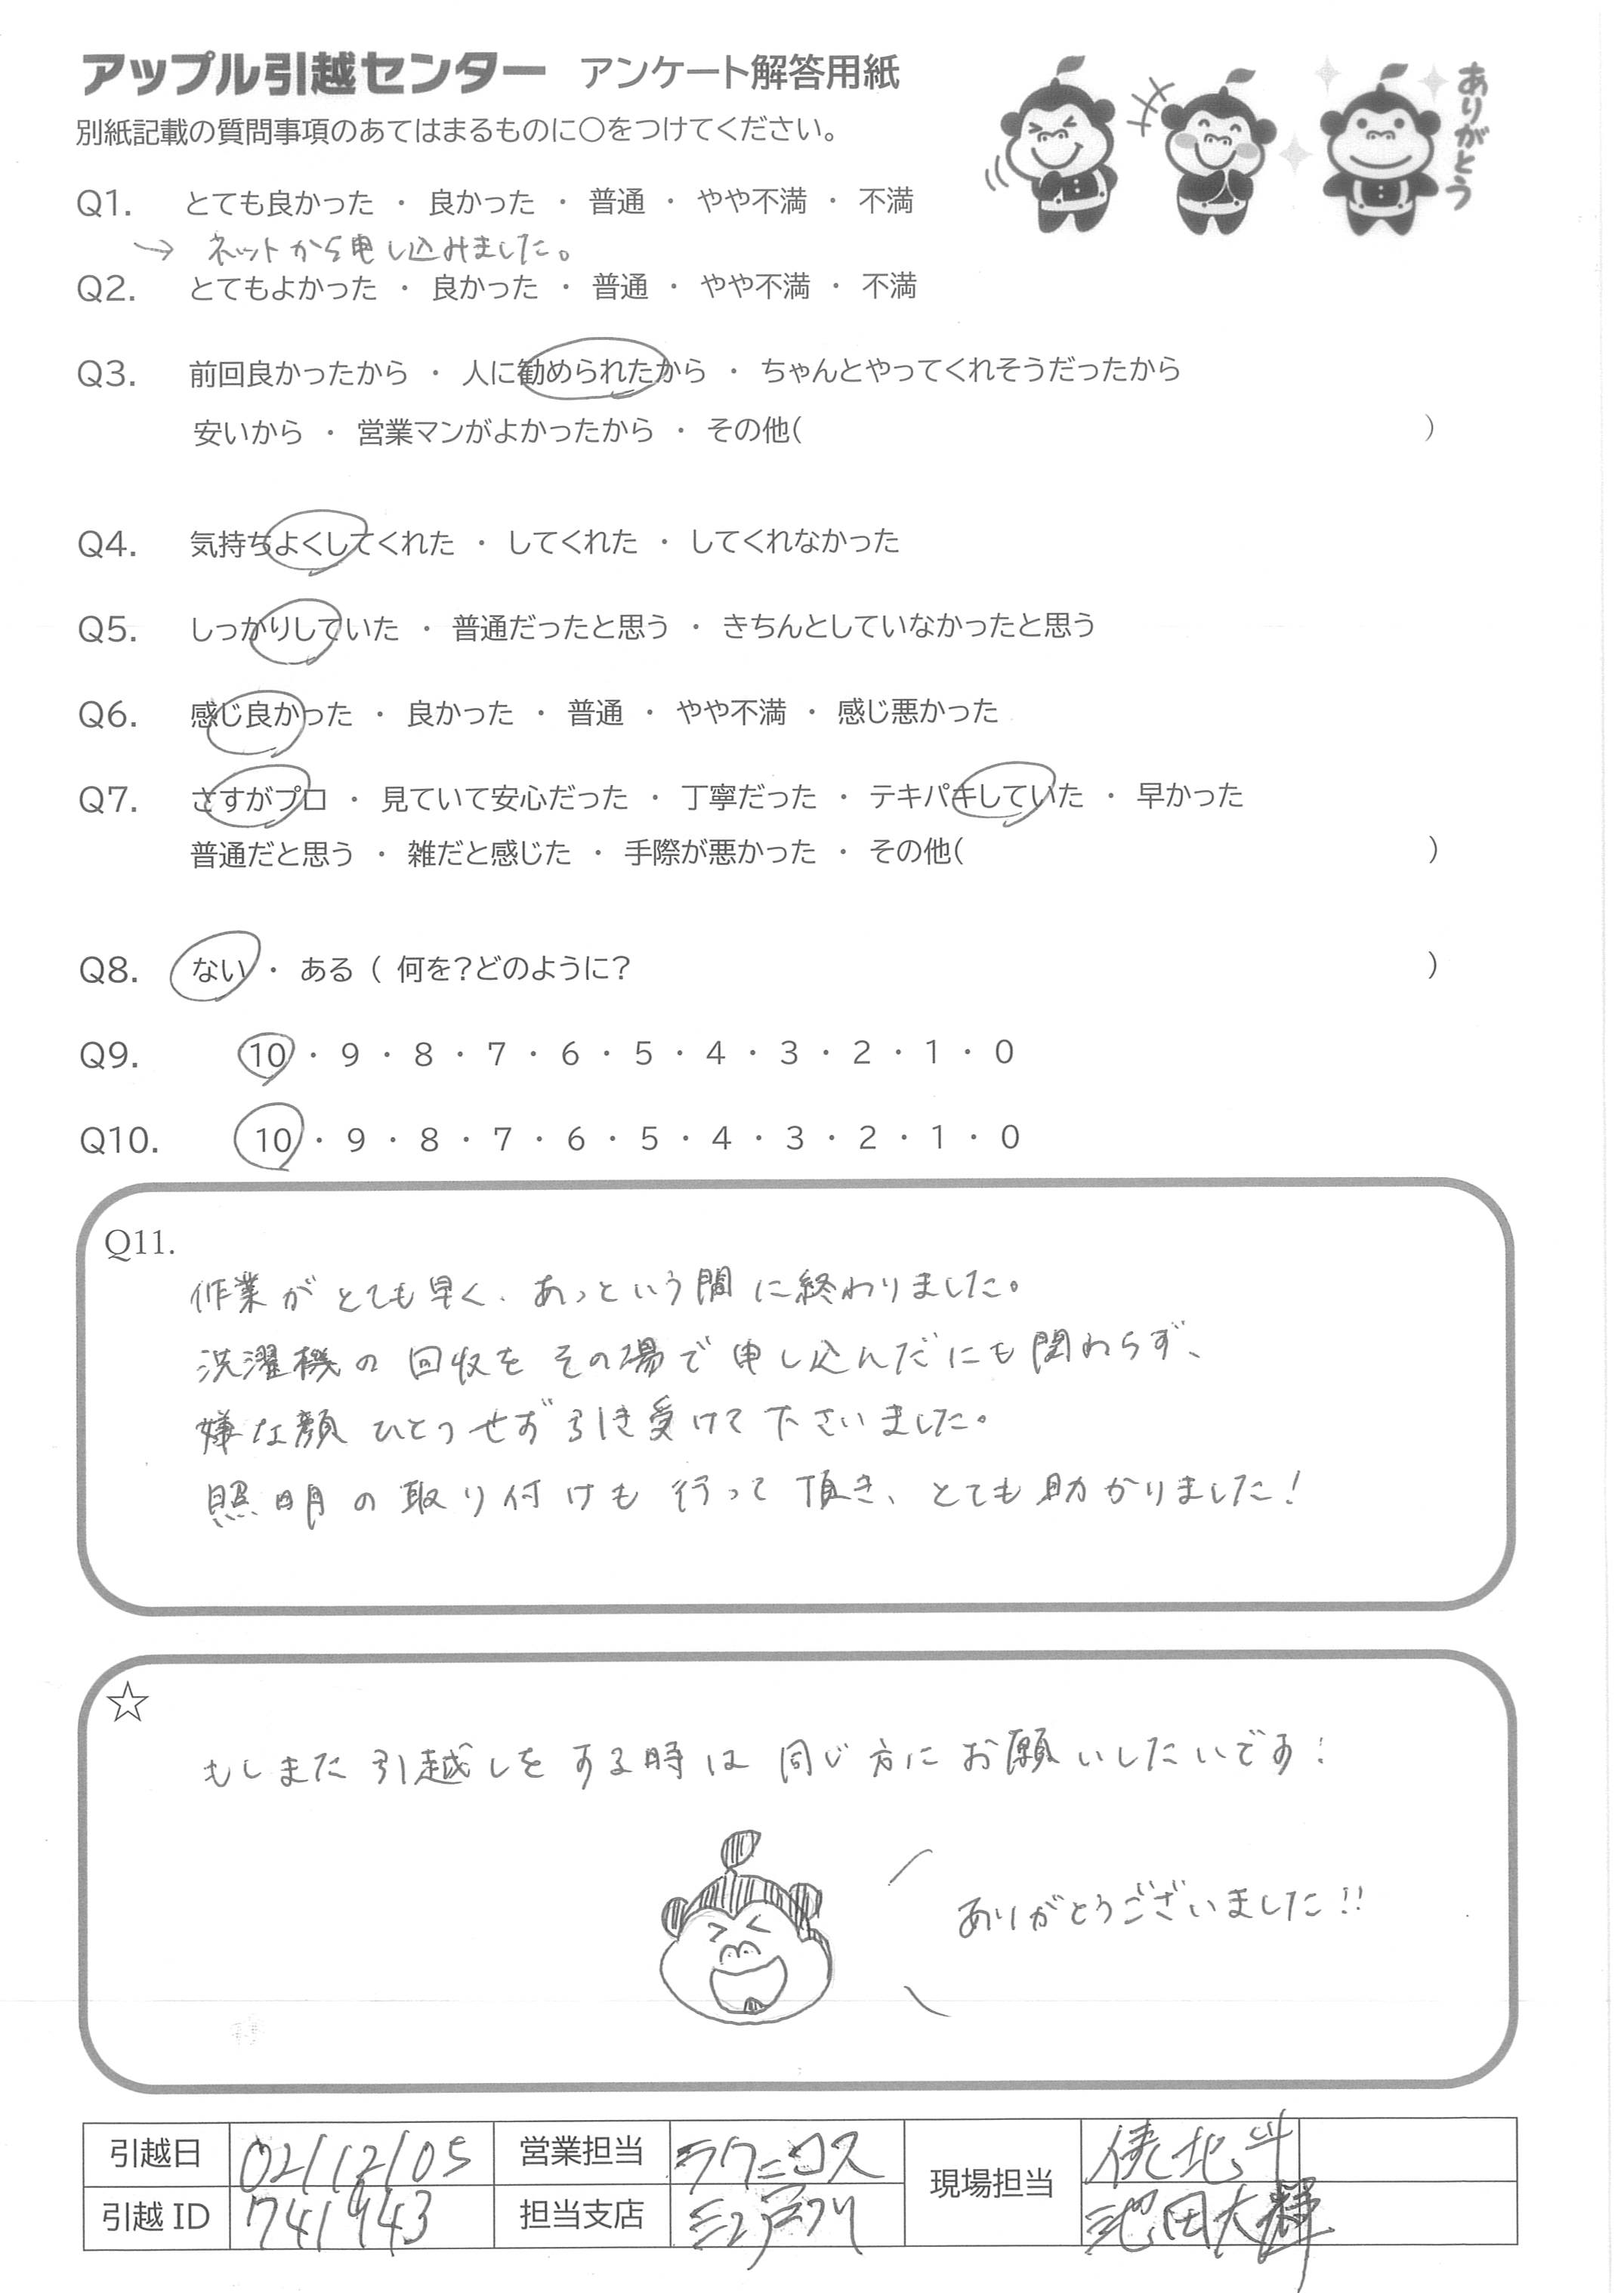 アップル引越センター アンケート解答用紙
別紙記載の質問事項のあてはまるものに○をつけてください。
ありがとう
Q1. とても良かった ・ 良かった ・ 普通 ・ やや不満 ・ 不満
→ ネットから申し込みました。
Q2. とてもよかった ・ 良かった ・ 普通 ・ やや不満 ・ 不満
Q3. 前回良かったから ・ 人に勧められたから ・ ちゃんとやってくれそうだったから
安いから ・ 営業マンがよかったから ・ その他( )
Q4. 気持ちよくしてくれた ・ してくれた ・ してくれなかった
Q5. しっかりしていた ・ 普通だったと思う ・ きちんとしていなかったと思う
Q6. 感じ良かった ・ 良かった ・ 普通 ・ やや不満 ・ 感じ悪かった
Q7. さすがプロ ・ 見ていて安心だった ・ 丁寧だった ・ テキパキしていた ・ 早かった
普通だと思う ・ 雑だと感じた ・ 手際が悪かった ・ その他( )
Q8. ない ・ ある ( 何を?どのように? )
Q9. 10 ・ 9 ・ 8 ・ 7 ・ 6 ・ 5 ・ 4 ・ 3 ・ 2 ・ 1 ・ 0
Q10. 10 ・ 9 ・ 8 ・ 7 ・ 6 ・ 5 ・ 4 ・ 3 ・ 2 ・ 1 ・ 0
Q11.
作業がとても早く、あっという間に終わりました。
洗濯機の回収をその場で申し込んだにも関わらず、
嫌な顔ひとつせず引き受けて下さいました。
照明の取り付けも行って頂き、とても助かりました!
☆
もしまた引越しをする時は同じ方にお願いしたいです!
ありがとうございました!!
引越日 02/12/05 営業担当 ラクニコス 現場担当 北斗
引越ID 741943 担当支店 江戸川 池田大輝